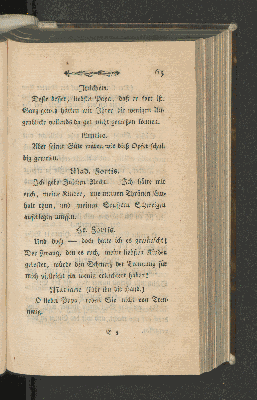 63
Julchen.
Desto besser, liebster Papa, daß er fort ist.
Ganz gewiß hätten wir Ihrer die wenigen Au-
genblicke vollends da gar nicht genießen können.
Aber seiner Güte wären wir dieß Opfer schul-
dig gewesen.
Mad. Fortis.
Ich gebe Julchen Recht. Ich hätte mir
euch, meine Kinder, und meinen Thränen Ein-
halt thun, und meinem Herzen Schweigen
auflegen müssen.
Hr. Fortis.
Und doch — doch hätte ich es gewünscht!
Der Zwang, den es euch, meine liebsten Kinder
gekostet, würde den Schmerz der Trennung für
mich vielleicht ein wenig erleichtert haben!
Mariane (faßt ihn die Hand.)
O lieber Papa, reden Sie nicht von Tren-
nung.